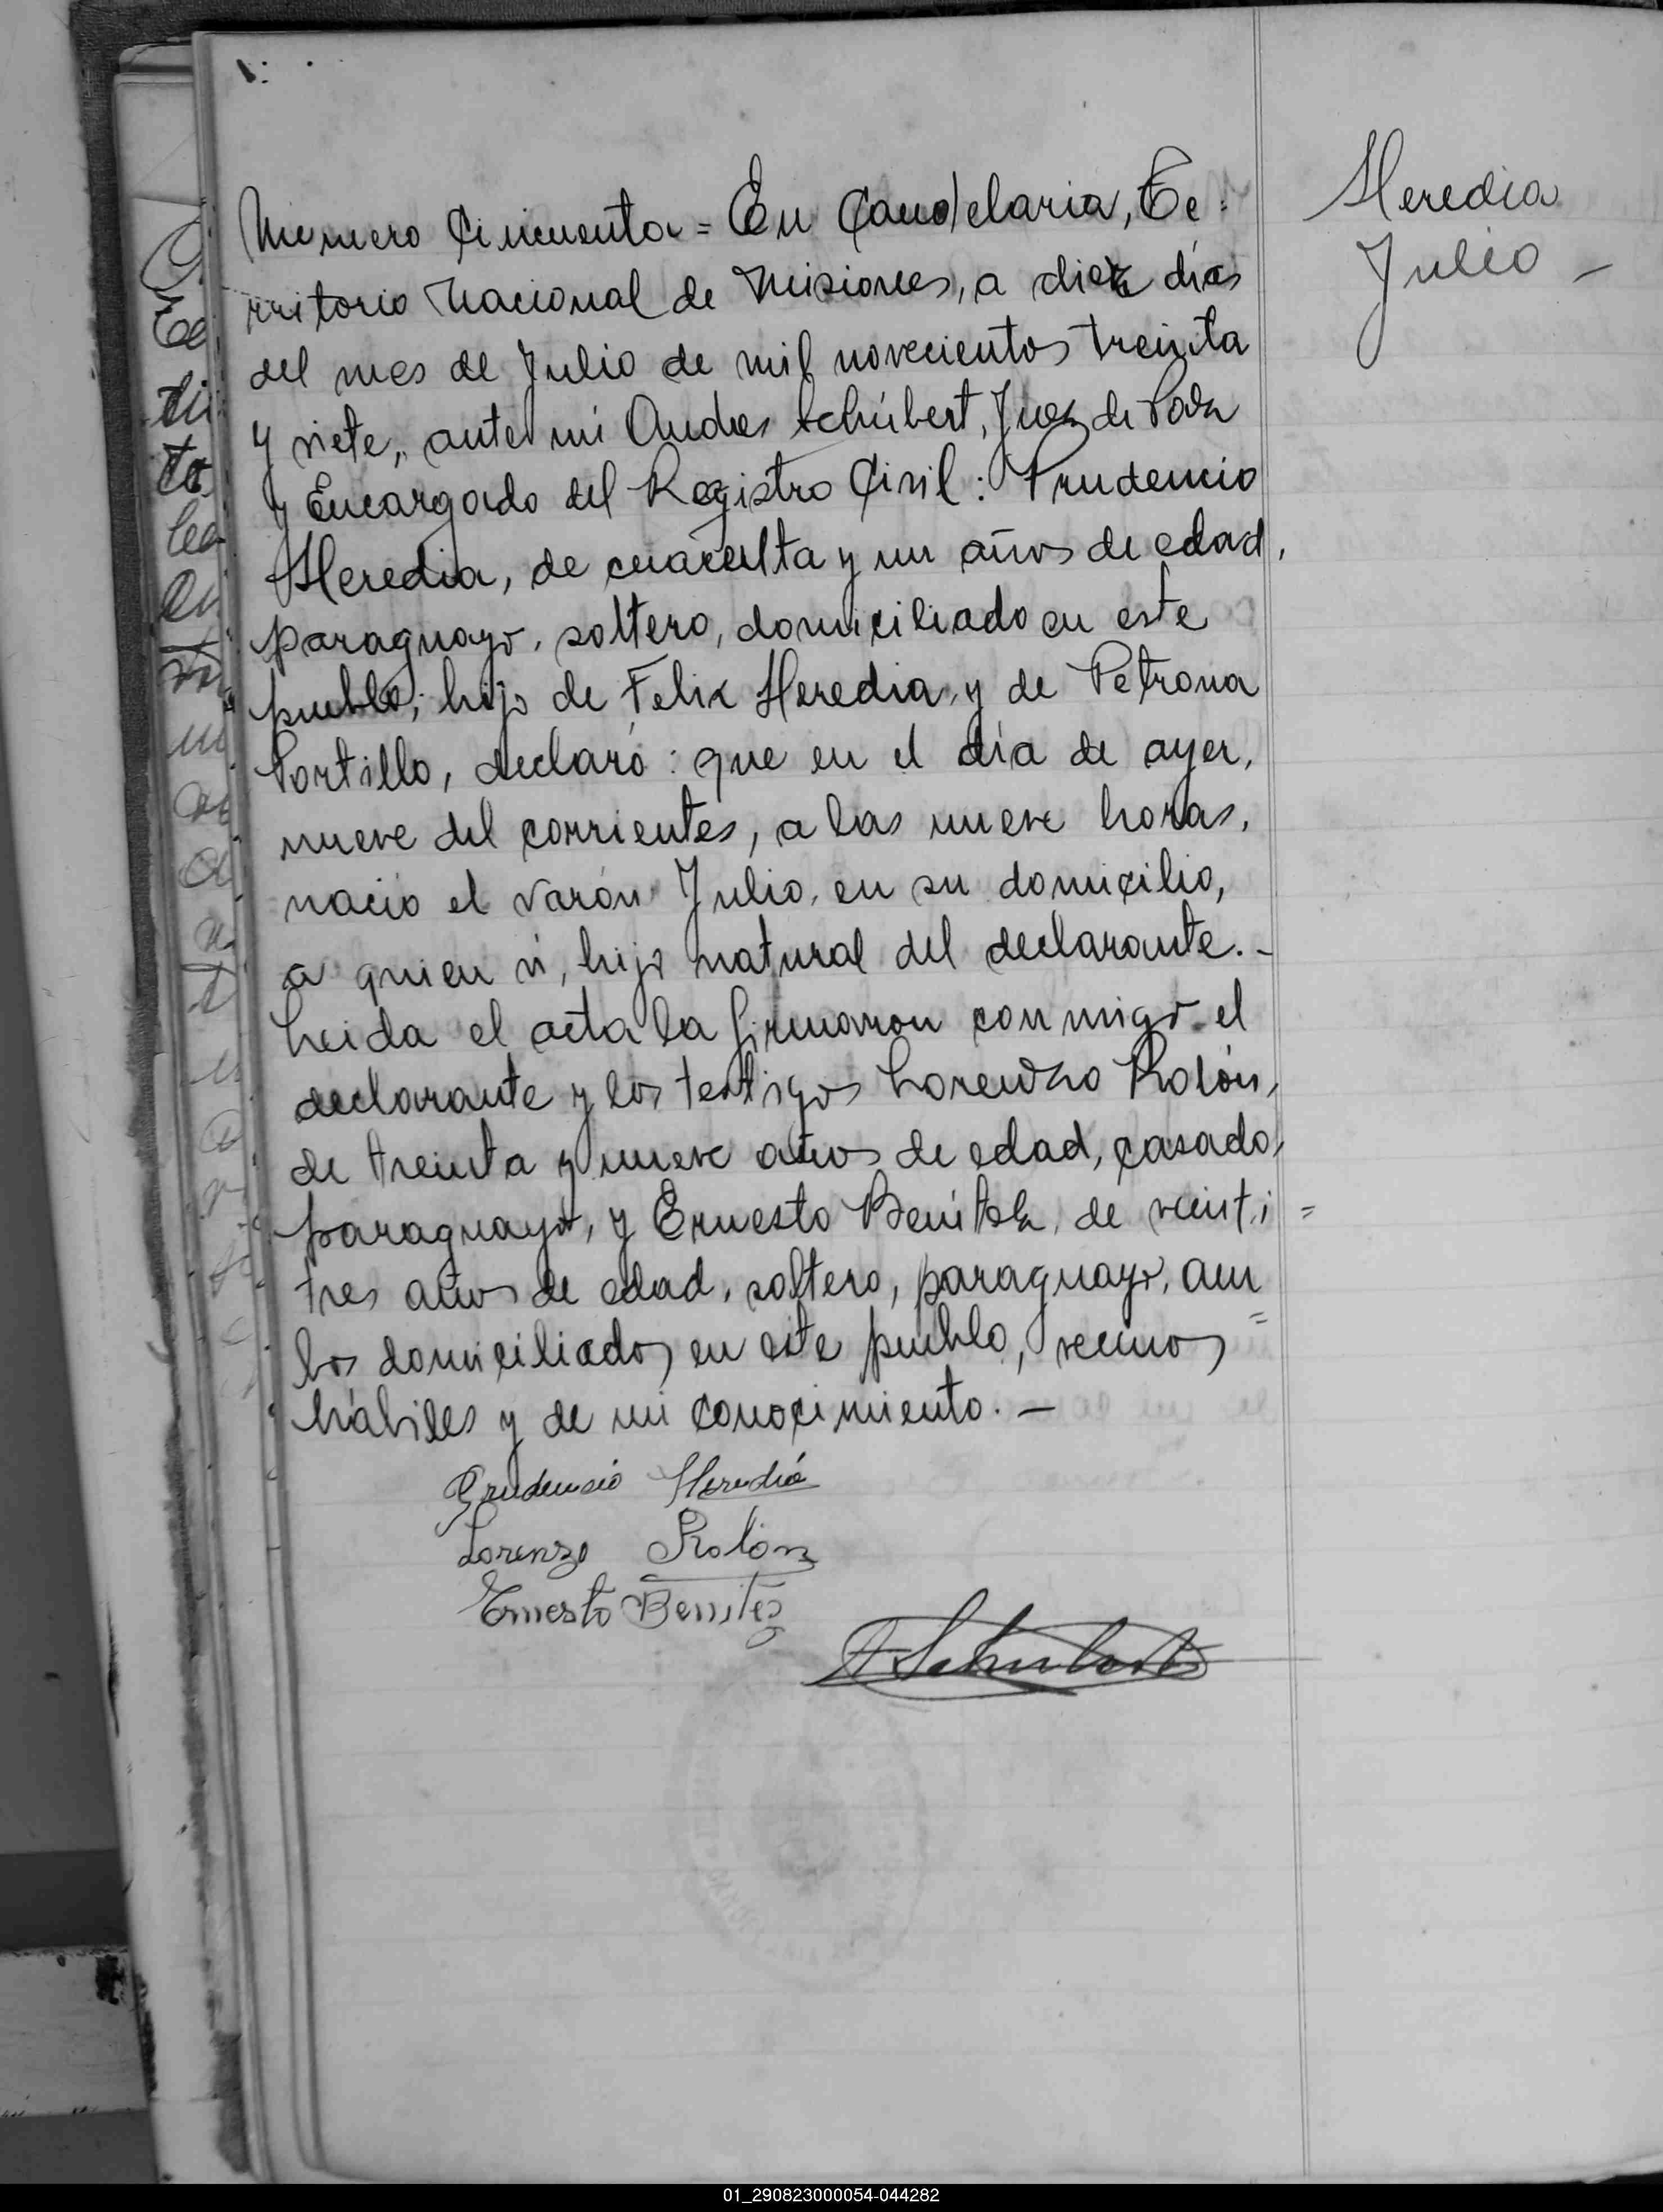 Heredia
Julio –
Número Cincuenta = En Candelaria, Te-
rritorio Nacional de Misiones, a diez días
del mes de Julio de mil novecientos treinta
y siete, ante mí Andres Schúbert, Juez de Paz
y Encargado del Registro Civil: Prudencio
Heredia, de cuarenta y un años de edad,
paraguayo, soltero, domiciliado en este
pueblo, hijo de Felix Heredia, y de Petrona
Portillo, declaró: que en el día de ayer,
nueve del corrientes, a las nueve horas,
nació el varón Julio, en su domicilio,
a quien ví, hijo natural del declarante. -
Leida el acta la firmaron conmigo el
declarante y los testigos Lorenzo Rolón,
de treinta y nueve años de edad, casado,
paraguayo, y Ernesto Benítez, de veinti =
tres años de edad, soltero, paraguayo, am =
bos domiciliados en este pueblo, vecinos
hábiles y de mi conocimiento. —
Prudencio Heredia
Lorenzo Rolón
Ernesto Benitez
A Schubert
01_290823000054-044282